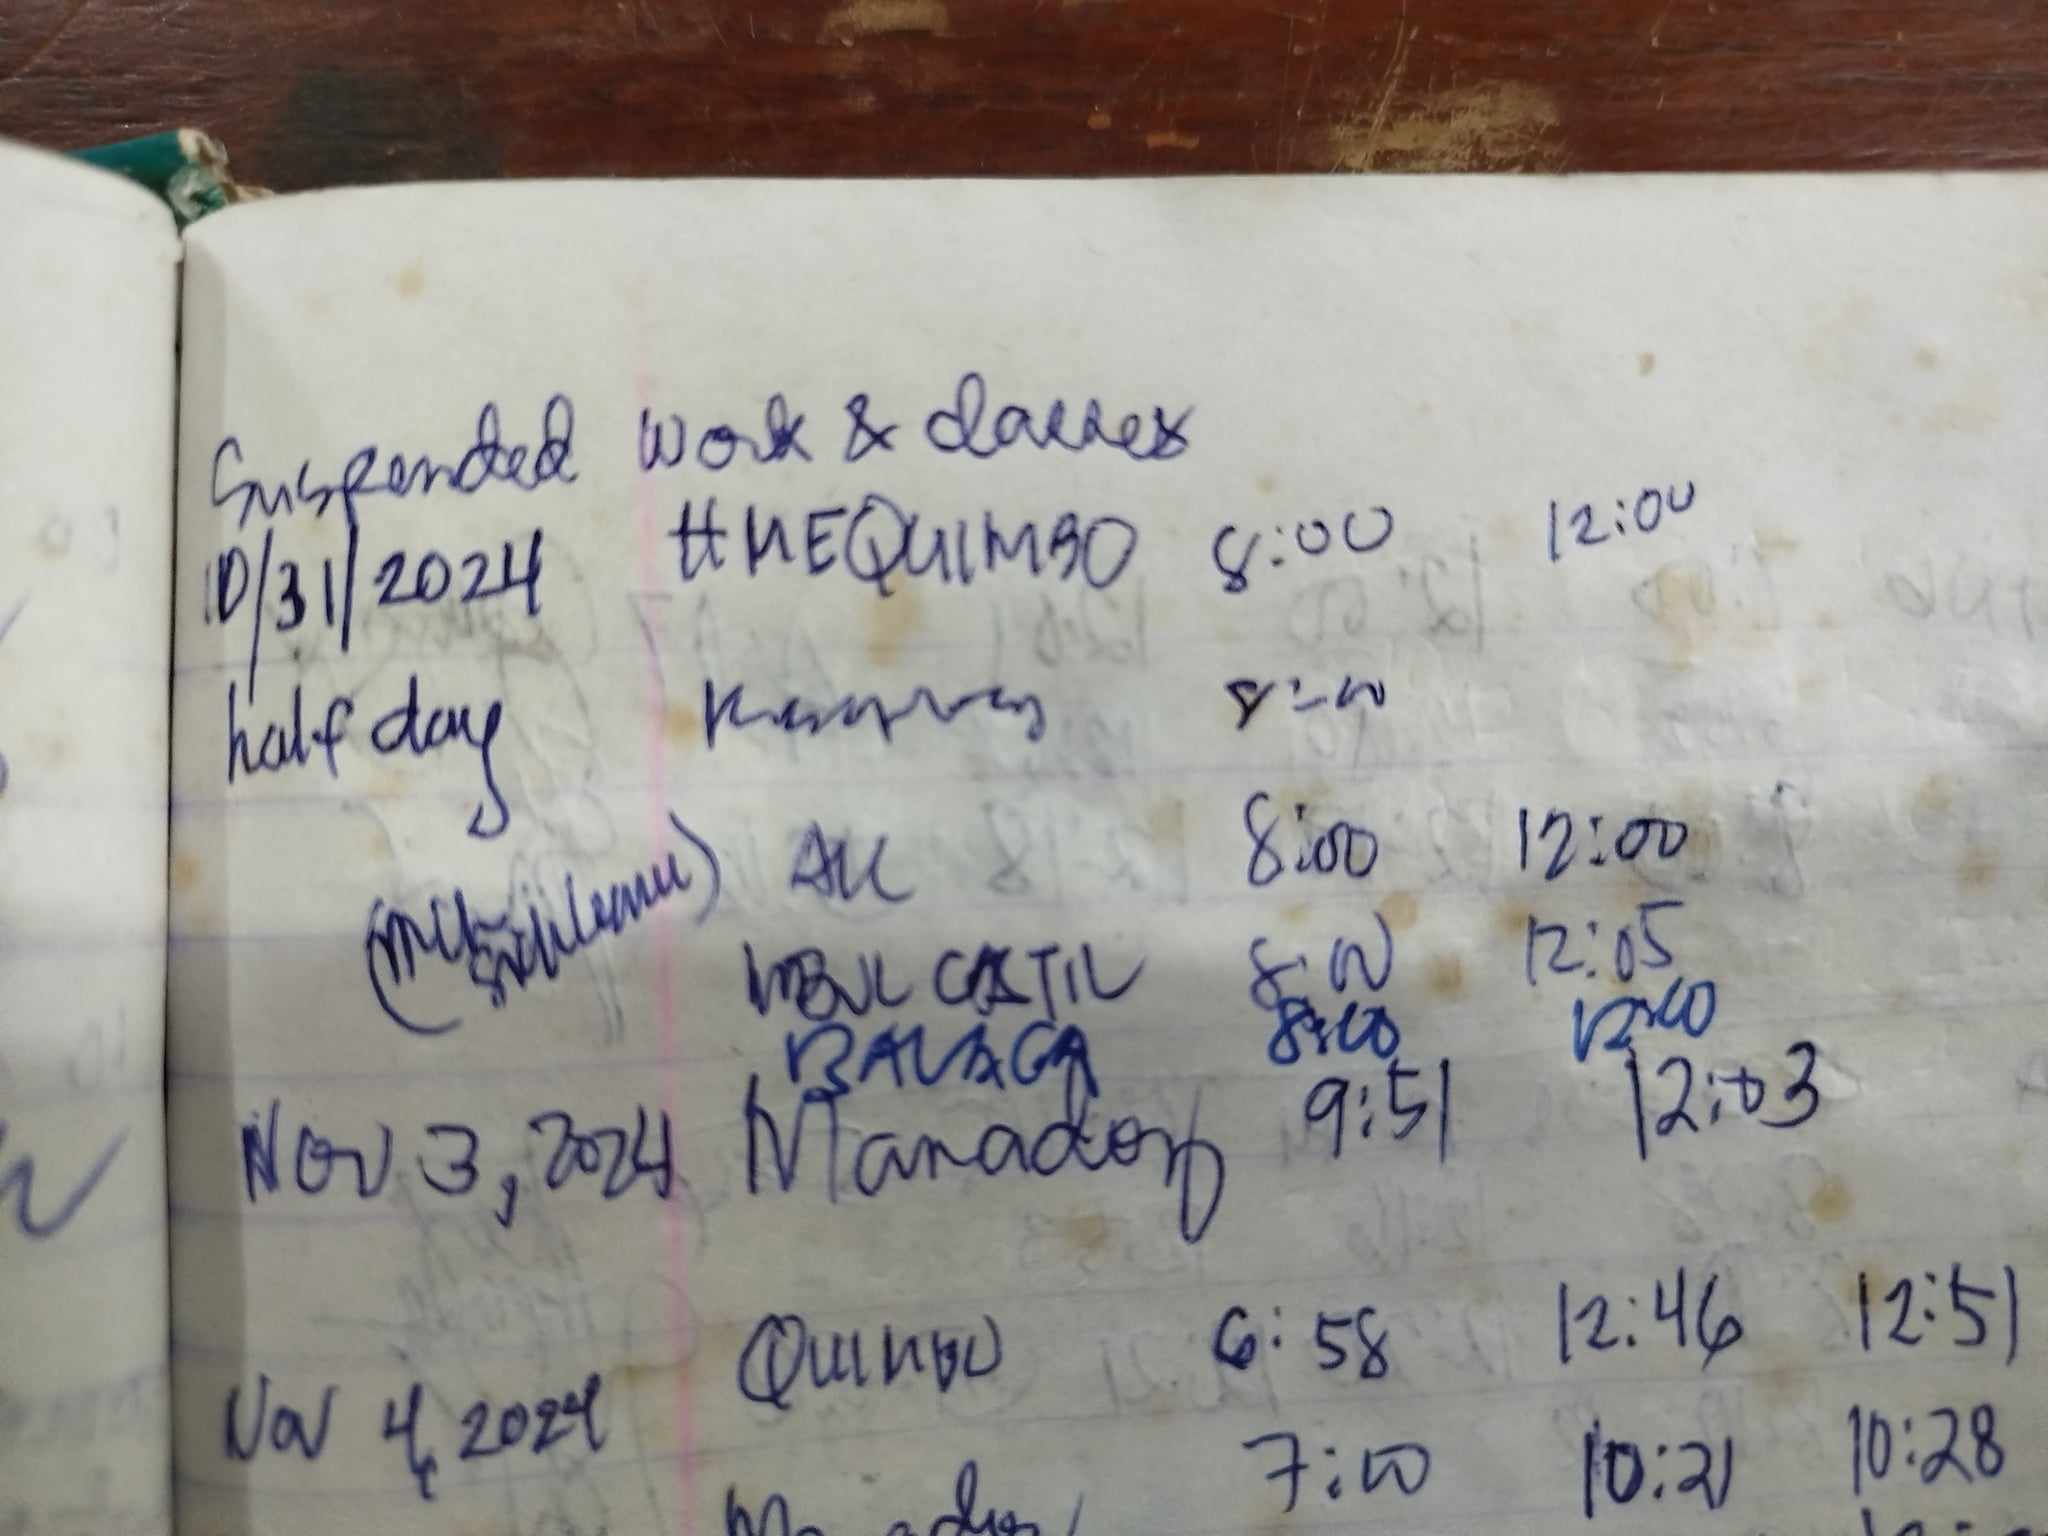 Suspended work & classes
10/31/2024 HHEQUIMBO 8:00 12:00
half day 8:00
AK 8:00 12:00
CASTIL 8:00 12:05
BALAGA 8:00 12:00
Nov 3, 2024 Manadoy 9:51 12:03
QUIMBO 6:58 12:46 12:51
Nov 4, 2024 7:00 10:21 10:28